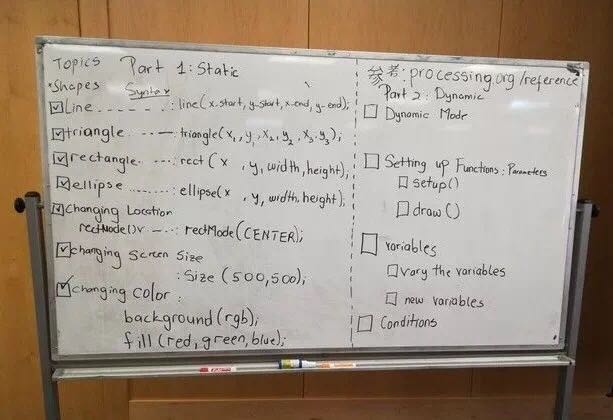 Topics Part 1: Static
*Shapes Syntax
Line - - - - - - - : line(x_start, y_start, x_end, y_end);
triangle - - - — : triangle(x1, y1, x2, y2, x3, y3);
rectangle - - - - : rect (x , y, width, height);
ellipse ........ : ellipse(x , y, width, height);
Changing Location
rectMode() - - : rectMode(CENTER);
changing Screen Size
: Size (500,500);
changing Color :
background(rgb);
fill(red, green, blue);
参考: processing.org/reference
Part 2: Dynamic
Dynamic Mode
Setting up Functions: Parameters
setup()
draw()
variables
vary the variables
new variables
Conditions